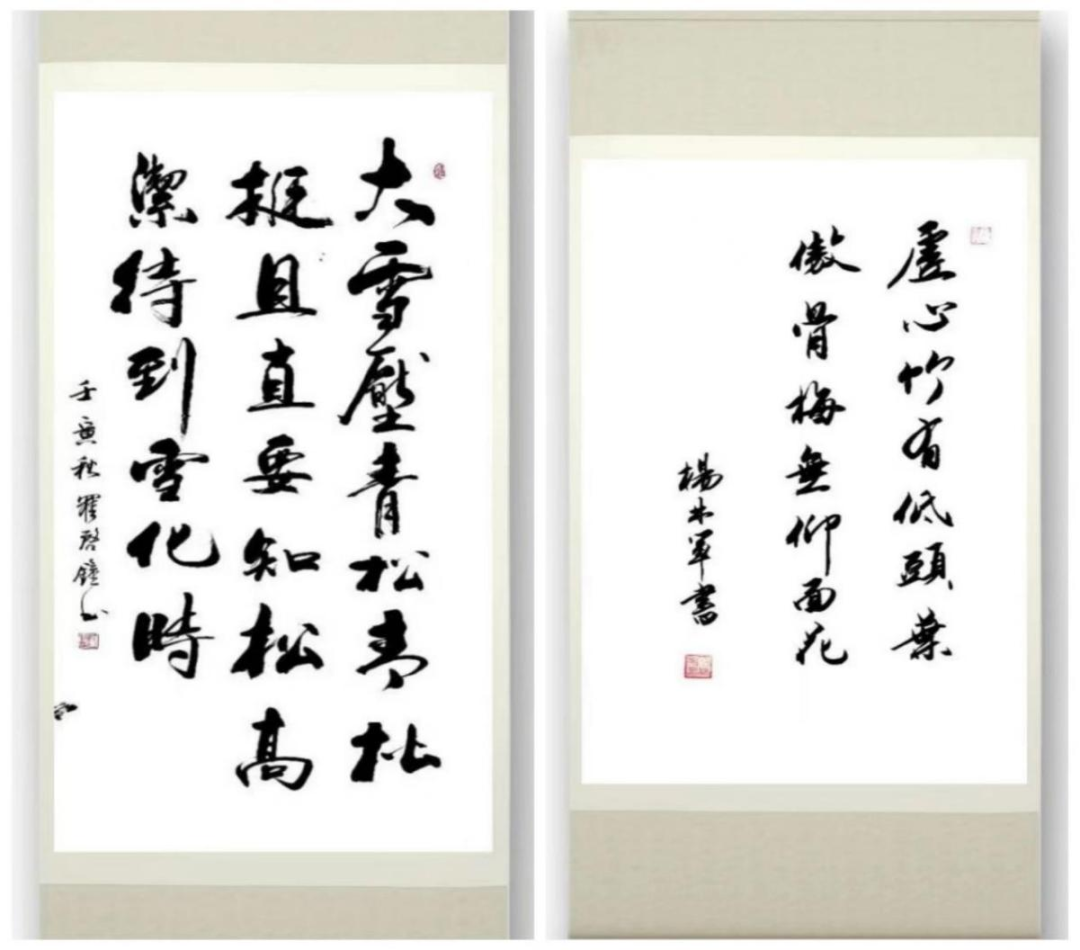 大雪壓青松青松
挺且直要知松高
潔待到雪化時
壬寅秋羅啓鐘書
虛心竹有低頭葉
傲骨梅無仰面花
楊木軍書